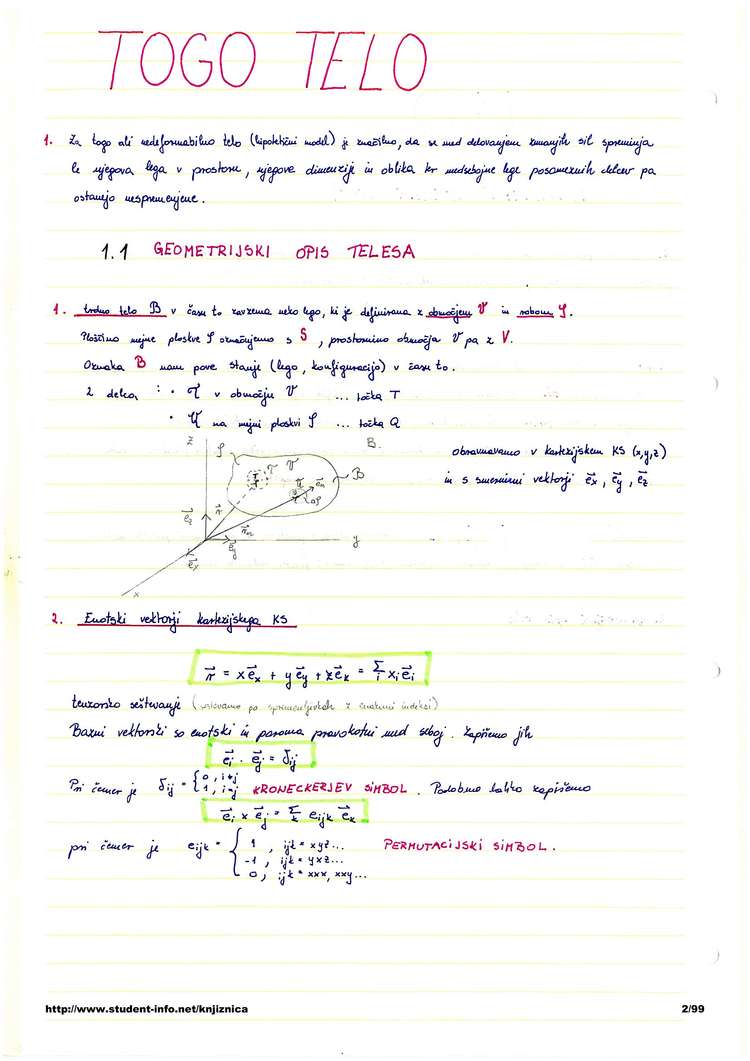 TOGO TELO
1. Za togo ali nedeformabilno telo (hipotetični model) je značilno, da se med delovanjem zunanjih sil spreminja
le njegova lega v prostoru, njegove dimenzije in oblika ter medsebojne lege posameznih delcev pa
ostanejo nespremenjene.
1.1 GEOMETRIJSKI OPIS TELESA
1. trdno telo B v času to zavzema neko lego, ki je definirana z območjem V in robom S.
Ploščino mejne ploskve S označujemo s S, prostornino območja V pa z V.
Oznaka B nam pove stanje (lego, konfiguracijo) v času to.
2 delca : • T v območju V ... točka T
• U na mejni ploskvi S ... točka Q
obravnavamo v kartezijskem KS (x,y,z)
in s smernimi vektorji e⃗x, e⃗y, e⃗z
z
S
T
V
B.
B
e⃗n
e⃗z
r⃗
e⃗y
y
e⃗x
x
2. Enotski vektorji kartezijskega KS
r⃗ = xe⃗x + ye⃗y + ze⃗k = Σi xi e⃗i
tenzorsko seštevanje (seštevamo po spremenljivkah z enakimi indeksi)
Bazni vektorski so enotski in paroma pravokotni med seboj. Zapišemo jih
e⃗i . e⃗j = δij
Pri čemer je δij = { 0, i≠j
1, i=j KRONECKERJEV SIMBOL. Podobno lahko zapišemo
e⃗i x e⃗j = Σk eijk e⃗k
pri čemer je eijk = { 1, ijk = xyz... PERMUTACIJSKI SIMBOL.
-1, ijk = yxz...
0, ijk = xxx, xxy...
http://www.student-info.net/knjiznica 2/99